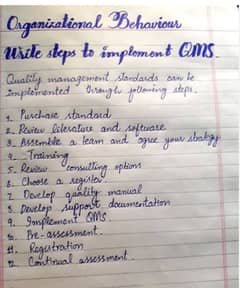 Organizational Behaviour
Write steps to implement QMS.
Quality management standards can be
implemented through following steps.
1. Purchase standard
2. Review literature and software
3. Assemble a team and agree your strategy
4. Training
5. Review consulting options
6. Choose a register
7. Develop quality manual
8. Develop support documentation
9. Implement QMS
10. Pre-assessment.
11. Registration
12. Continual assessment.